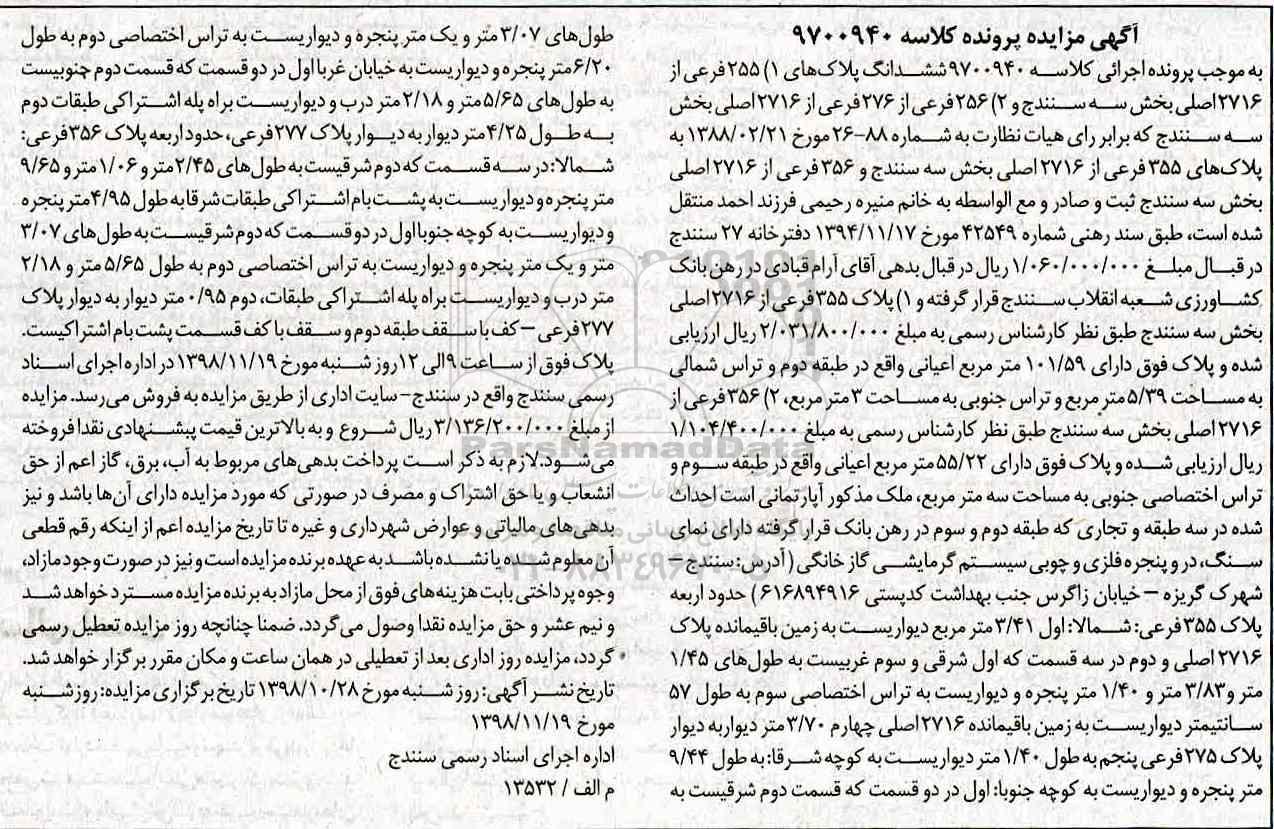 آگهی مزایده پرونده کلاسه ۹۷۰۰۹۴۰
به موجب پرونده اجرائی کلاسه ۹۷۰۰۹۴۰ ششدانگ پلاک‌های ۱) ۲۵۵ فرعی از
۲۷۱۶ اصلی بخش سه سنندج و ۲) ۲۵۶ فرعی از ۲۷۶ فرعی از ۲۷۱۶ اصلی بخش
سه سنندج که برابر رای هیات نظارت به شماره ۸۸-۲۶ مورخ ۱۳۸۸/۰۲/۲۱ به
پلاک‌های ۳۵۵ فرعی از ۲۷۱۶ اصلی بخش سه سنندج و ۳۵۶ فرعی از ۲۷۱۶ اصلی
بخش سه سنندج ثبت و صادر و مع الواسطه به خانم منیره رحیمی فرزند احمد منتقل
شده است، طبق سند رهنی شماره ۴۲۵۴۹ مورخ ۱۳۹۴/۱۱/۱۷ دفترخانه ۲۷ سنندج
در قبال مبلغ ۱/۰۶۰/۰۰۰/۰۰۰ ریال در قبال بدهی آقای آرام قبادی در رهن بانک
کشاورزی شعبه انقلاب سنندج قرار گرفته و ۱) پلاک ۳۵۵ فرعی از ۲۷۱۶ اصلی
بخش سه سنندج طبق نظر کارشناس رسمی به مبلغ ۲/۰۳۱/۸۰۰/۰۰۰ ریال ارزیابی
شده و پلاک فوق دارای ۱۰۱/۵۹ متر مربع اعیانی واقع در طبقه دوم و تراس شمالی
به مساحت ۵/۳۹ متر مربع و تراس جنوبی به مساحت ۳ متر مربع، ۲) ۳۵۶ فرعی از
۲۷۱۶ اصلی بخش سه سنندج طبق نظر کارشناس رسمی به مبلغ ۱/۱۰۴/۴۰۰/۰۰۰
ریال ارزیابی شده و پلاک فوق دارای ۵۵/۲۲ متر مربع اعیانی واقع در طبقه سوم و
تراس اختصاصی جنوبی به مساحت سه متر مربع، ملک مذکور آپارتمانی است احداث
شده در سه طبقه و تجاری که طبقه دوم و سوم در رهن بانک قرار گرفته دارای نمای
سنگ، در و پنجره فلزی و چوبی سیستم گرمایشی گاز خانگی ( آدرس: سنندج –
شهرک گریزه – خیابان زاگرس جنب بهداشت کدپستی ۶۱۶۸۹۴۹۱۶) حدود اربعه
پلاک ۳۵۵ فرعی: شمالا: اول ۳/۴۱ متر مربع دیواریست به زمین باقیمانده پلاک
۲۷۱۶ اصلی و دوم در سه قسمت که اول شرقی و سوم غربیست به طول‌های ۱/۴۵
متر و ۳/۸۳ متر و ۱/۴۰ متر پنجره و دیواریست به تراس اختصاصی سوم به طول ۵۷
سانتیمتر دیواریست به زمین باقیمانده ۲۷۱۶ اصلی چهارم ۳/۷۰ متر دیوار به دیوار
پلاک ۲۷۵ فرعی پنجم به طول ۱/۴۰ متر دیواریست به کوچه شرقا: به طول ۹/۴۴
متر پنجره و دیواریست به کوچه جنوبا: اول در دو قسمت که قسمت دوم شرقیست به
طول‌های ۳/۰۷ متر و یک متر پنجره و دیواریست به تراس اختصاصی دوم به طول
۶/۲۰ متر پنجره و دیواریست به خیابان غربا اول در دو قسمت که قسمت دوم جنوبیست
به طول‌های ۵/۶۵ متر و ۲/۱۸ متر درب و دیواریست براه پله اشتراکی طبقات دوم
به طول ۴/۲۵ متر دیوار به دیوار پلاک ۲۷۷ فرعی، حدود اربعه پلاک ۳۵۶ فرعی:
شمالا: در سه قسمت که دوم شرقیست به طول‌های ۲/۴۵ متر و ۱/۰۶ متر و ۹/۶۵
متر پنجره و دیواریست به پشت بام اشتراکی طبقات شرقا به طول ۴/۹۵ متر پنجره
و دیواریست به کوچه جنوبا اول در دو قسمت که دوم شرقیست به طول‌های ۳/۰۷
متر و یک متر پنجره و دیواریست به تراس اختصاصی دوم به طول ۵/۶۵ متر و ۲/۱۸
متر درب و دیواریست براه پله اشتراکی طبقات، دوم ۰/۹۵ متر دیوار به دیوار پلاک
۲۷۷ فرعی – کف با سقف طبقه دوم و سقف با کف قسمت پشت بام اشتراکیست.
پلاک فوق از ساعت ۹ الی ۱۲ روز شنبه مورخ ۱۳۹۸/۱۱/۱۹ در اداره اجرای اسناد
رسمی سنندج واقع در سنندج- سایت اداری از طریق مزایده به فروش می‌رسد. مزایده
از مبلغ ۳/۱۳۶/۲۰۰/۰۰۰ ریال شروع و به بالاترین قیمت پیشنهادی نقدا فروخته
می‌شود. لازم به ذکر است پرداخت بدهی‌های مربوط به آب، برق، گاز اعم از حق
انشعاب و یا حق اشتراک و مصرف در صورتی که مورد مزایده دارای آن‌ها باشد و نیز
بدهی‌های مالیاتی و عوارض شهرداری و غیره تا تاریخ مزایده اعم از اینکه رقم قطعی
آن معلوم شده یا نشده باشد به عهده برنده مزایده است و نیز در صورت وجود مازاد،
وجوه پرداختی بابت هزینه‌های فوق از محل مازاد به برنده مزایده مسترد خواهد شد
و نیم عشر و حق مزایده نقدا وصول می‌گردد. ضمنا چنانچه روز مزایده تعطیل رسمی
گردد، مزایده روز اداری بعد از تعطیلی در همان ساعت و مکان مقرر برگزار خواهد شد.
تاریخ نشر آگهی: روز شنبه مورخ ۱۳۹۸/۱۰/۲۸ تاریخ برگزاری مزایده: روز شنبه
مورخ ۱۳۹۸/۱۱/۱۹
اداره اجرای اسناد رسمی سنندج
م الف / ۱۳۵۳۲
ParsNamadData